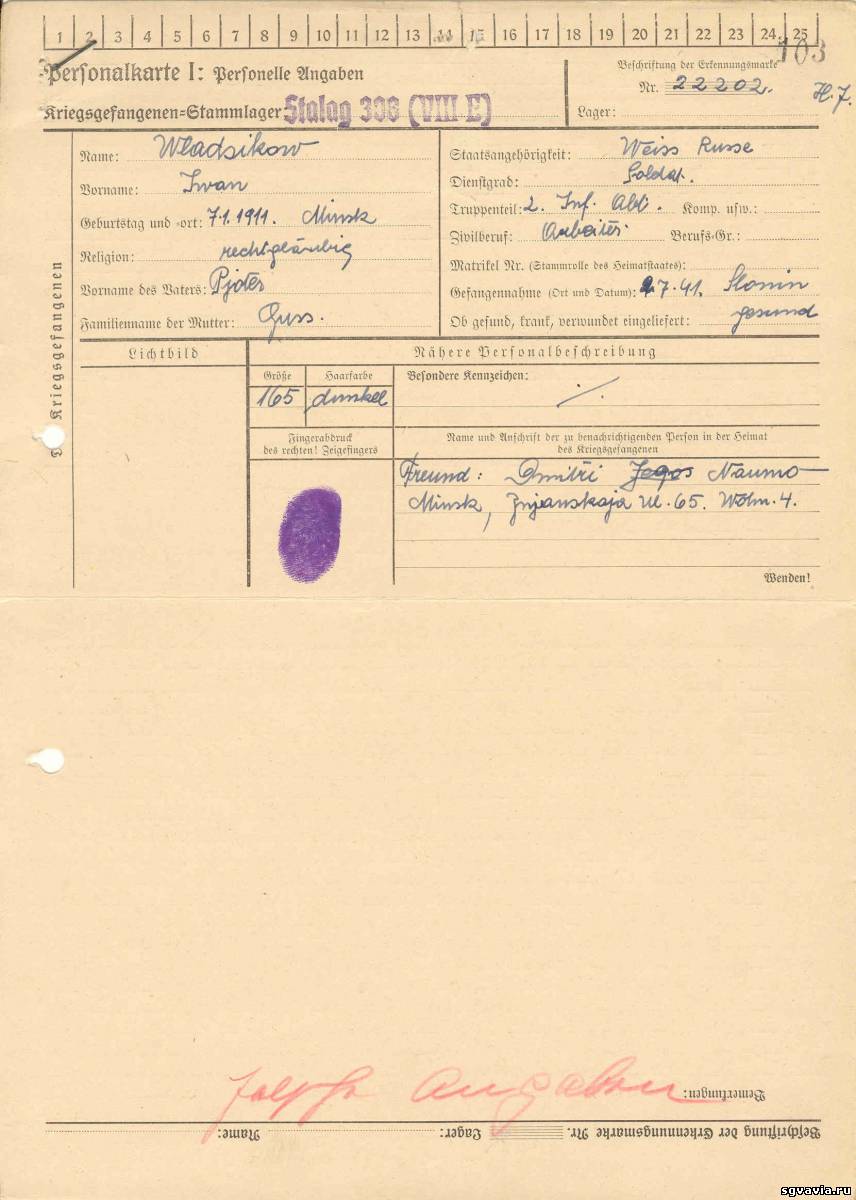 1 2 3 4 5 6 7 8 9 10 11 12 13 14 15 16 17 18 19 20 21 22 23 24 25
103
Personalkarte I: Personelle Angaben
Beschriftung der Erkennungsmarke
Nr. 22202.
Kriegsgefangenen-Stammlager Stalag 308 (VIII E)
Lager:
H. 7.
Kriegsgefangenen
Name: Wladsikow
Vorname: Iwan
Geburtstag und -ort: 7.1.1911. Minsk
Religion: rechtgläubig
Vorname des Vaters: Pjoter
Familienname der Mutter: Guss.
Staatsangehörigkeit: Weiss Russe
Dienstgrad: Soldat.
Truppenteil: 2. Inf. Abt. Komp. usw.:
Zivilberuf: Arbeiter. Berufs-Gr.:
Matrikel Nr. (Stammrolle des Heimatstaates):
Gefangennahme (Ort und Datum): 7.41. Slonin
Ob gesund, krank, verwundet eingeliefert: gesund
Lichtbild
Nähere Personalbeschreibung
Größe
165
Haarfarbe
dunkel
Besondere Kennzeichen: ./.
Fingerabdruck
des rechten! Zeigefingers
Name und Anschrift der zu benachrichtigenden Person in der Heimat
des Kriegsgefangenen
Freund: Dmitri Naumo
Minsk, Ul. 65. Wohn. 4.
Wenden!
Angaben
Bemerkungen:
Beschriftung der Erkennungsmarke Nr. Lager: Name:
sgvavia.ru